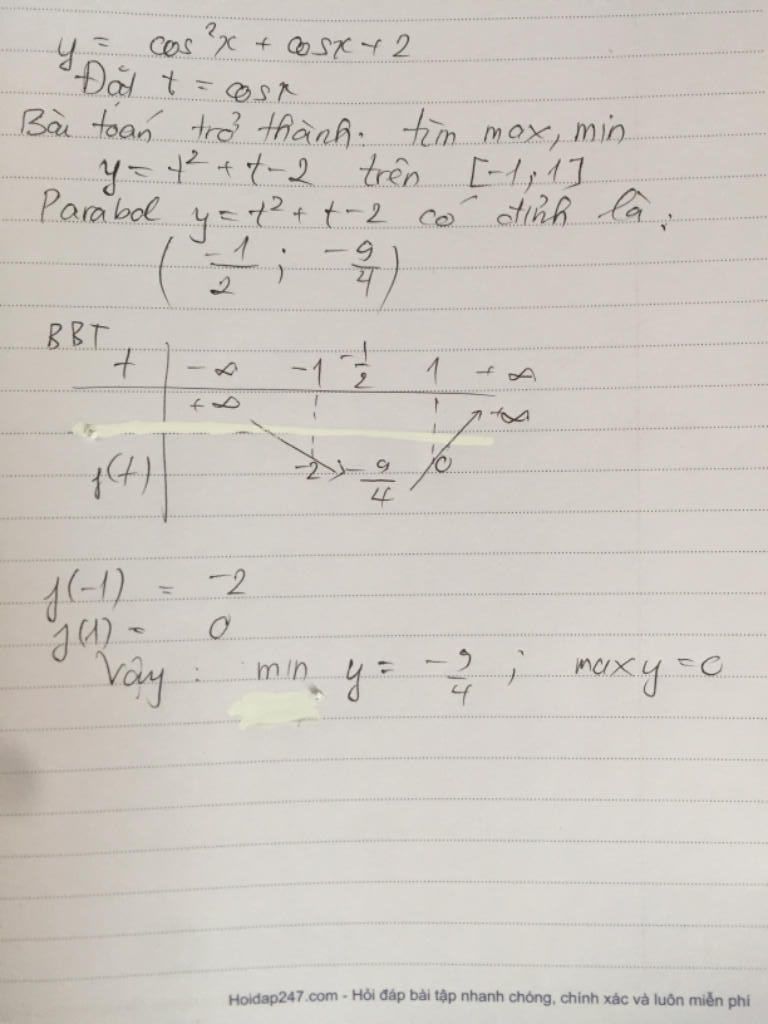 y = cos²x + cosx + 2
Đặt t = cosx
Bài toán trở thành: tìm max, min
y = t² + t - 2 trên [-1; 1]
Parabol y = t² + t - 2 có đỉnh là:
(-1/2 ; -9/4)
BBT
t -∞ -1 -1/2 1 +∞
+∞ +∞
f(t) -2 -9/4 0
f(-1) = -2
f(1) = 0
Vậy : min y = -9/4 ; max y = 0
Hoidap247.com - Hỏi đáp bài tập nhanh chóng, chính xác và luôn miễn phí